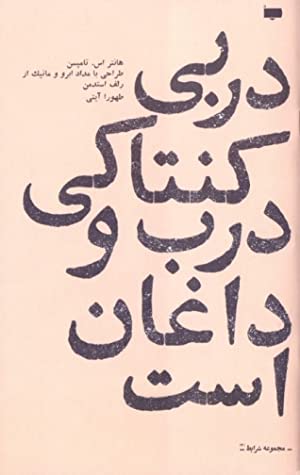 هانتر اس. تامپسن
طراحی با مداد ابرو و ماتیک از
رلف استدمن
طهورا آیتی
دربی
کنتاکی
درب و
داغان
است
– مجموعه شرایط –